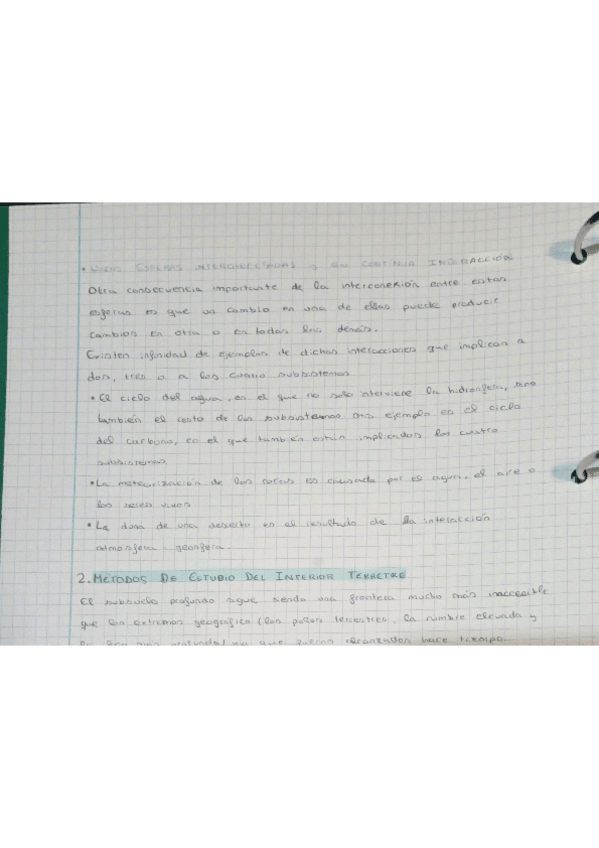 • ESFERAS INTERCONECTADAS y en CONTINUA INTERACCIÓN
Otra consecuencia importante de la interconexión entre estas
esferas es que un cambio en una de ellas puede producir
cambios en otra o en todas las demás.
Existen infinidad de ejemplos de dichas interacciones que implican a
dos, tres o a los cuatro subsistemas
• El ciclo del agua, en el que no solo interviene la hidrosfera, sino
también el resto de los subsistemas otro ejemplo es el ciclo
del carbono, en el que también están implicados los cuatro
subsistemas
• La meteorización de las rocas es causada por el agua, el aire o
los seres vivos
• La duna de una desierto es el resultado de la interacción
atmosfera - geosfera.
2. METODOS DE ESTUDIO DEL INTERIOR TERRETRE
El subsuelo profundo sigue siendo una frontera mucho más inaccesible
que los extremos geografica (los polos terrestres, la numbre elevada y
la más profunda) ya que fueron alcanzados hace tiempo.